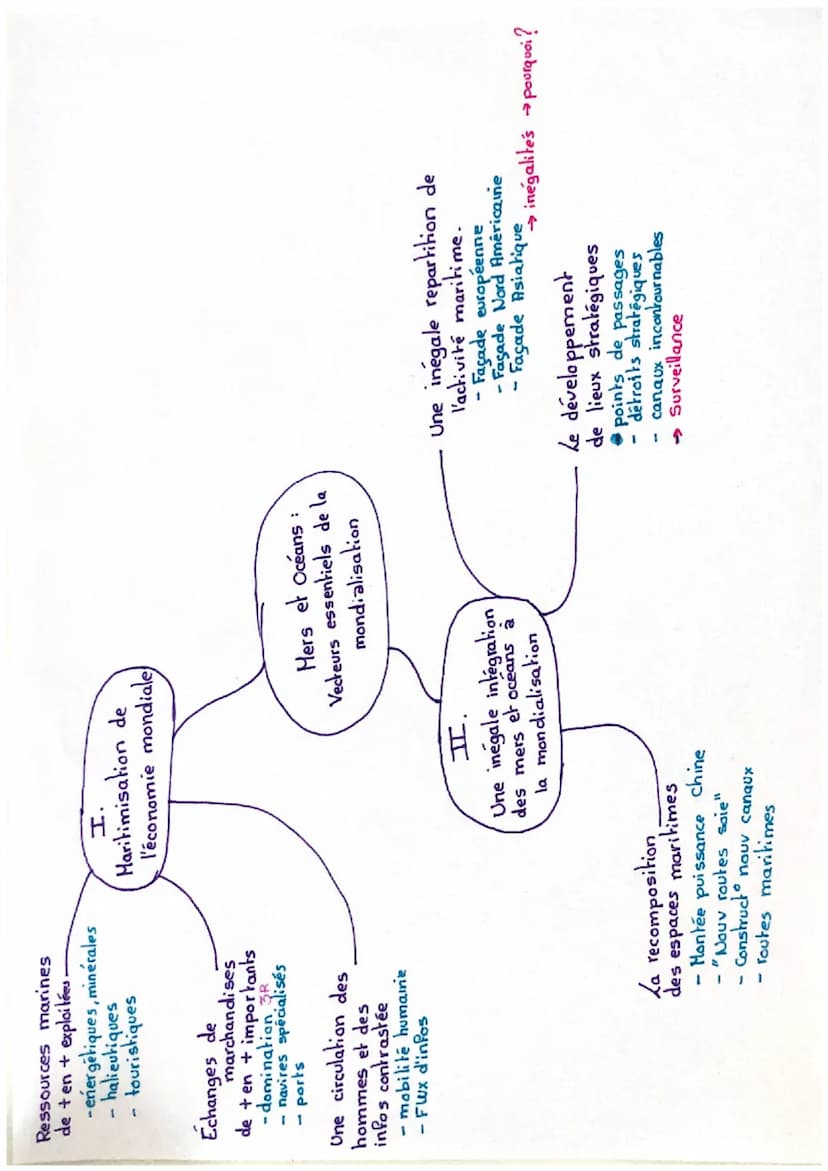 Mers et Océans :
Vecteurs essentiels de la
mondialisation
I.
Maritimisation de
l'économie mondiale
Ressources marines
de + en + exploitées
- énergétiques, minérales
- halieutiques
- touristiques
Échanges de
marchandises
de + en + importants
- domination 3R
- navires spécialisés
- ports
Une circulation des
hommes et des
infos contrastée
- mobilité humaine
- Flux d'infos
II.
Une inégale intégration
des mers et océans à
la mondialisation
Une inégale repartition de
l'activité maritime.
- Façade européenne
- Façade Nord Américaine
- Façade Asiatique
→ inégalités → pourquoi?
Le développement
de lieux stratégiques
points de passages
- détroits stratégiques
- canaux incontournables
→ Surveillance
La recomposition
des espaces maritimes
- Montée puissance Chine
- "Nouv routes soie"
- Construct° nouv canaux
- routes maritimes